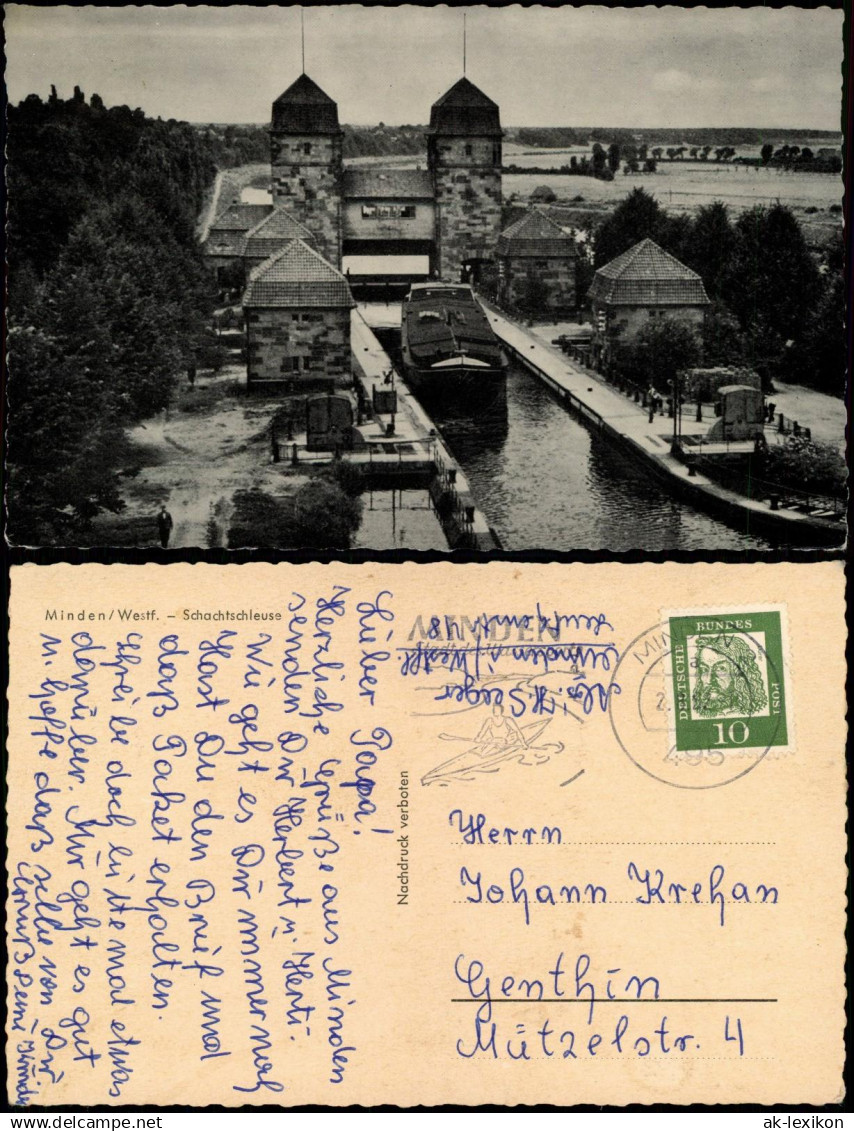 Minden/Westf. – Schachtschleuse
Lieber Papa!
Herzliche Grüße aus Minden
senden Dir Herbert u. Herti.
Wie geht es Dir immer noch
Hast Du den Brief und
daß Paket erhalten.
Schreibe doch bitte mal etwas
darüber. Mir geht es gut
u. hoffe daß selbe von Dir
Nachdruck verboten
MINDEN
Abs. H. Seeger
Minden i/Westf.
48
MINDEN
495
DEUTSCHE BUNDESPOST
10
Herrn
Johann Krehan
Genthin
Mützelstr. 4
ak-lexikon.com